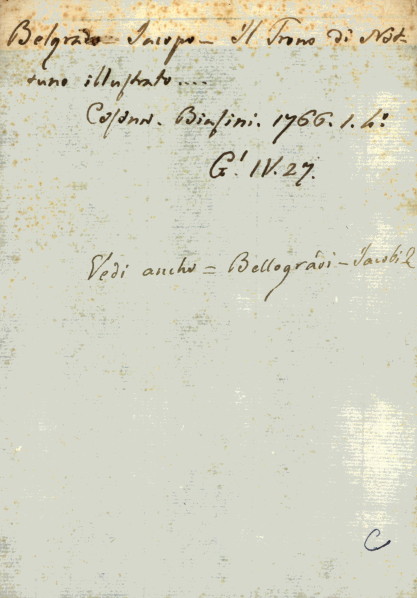 Belgrado = Jacopo = Il Trono di Net-
tuno illustrato ....
Cesena. Biasini. 1766. 1. 4.º
G.' IV. 27.
Vedi anche = Bellogradi = Jacobi
C